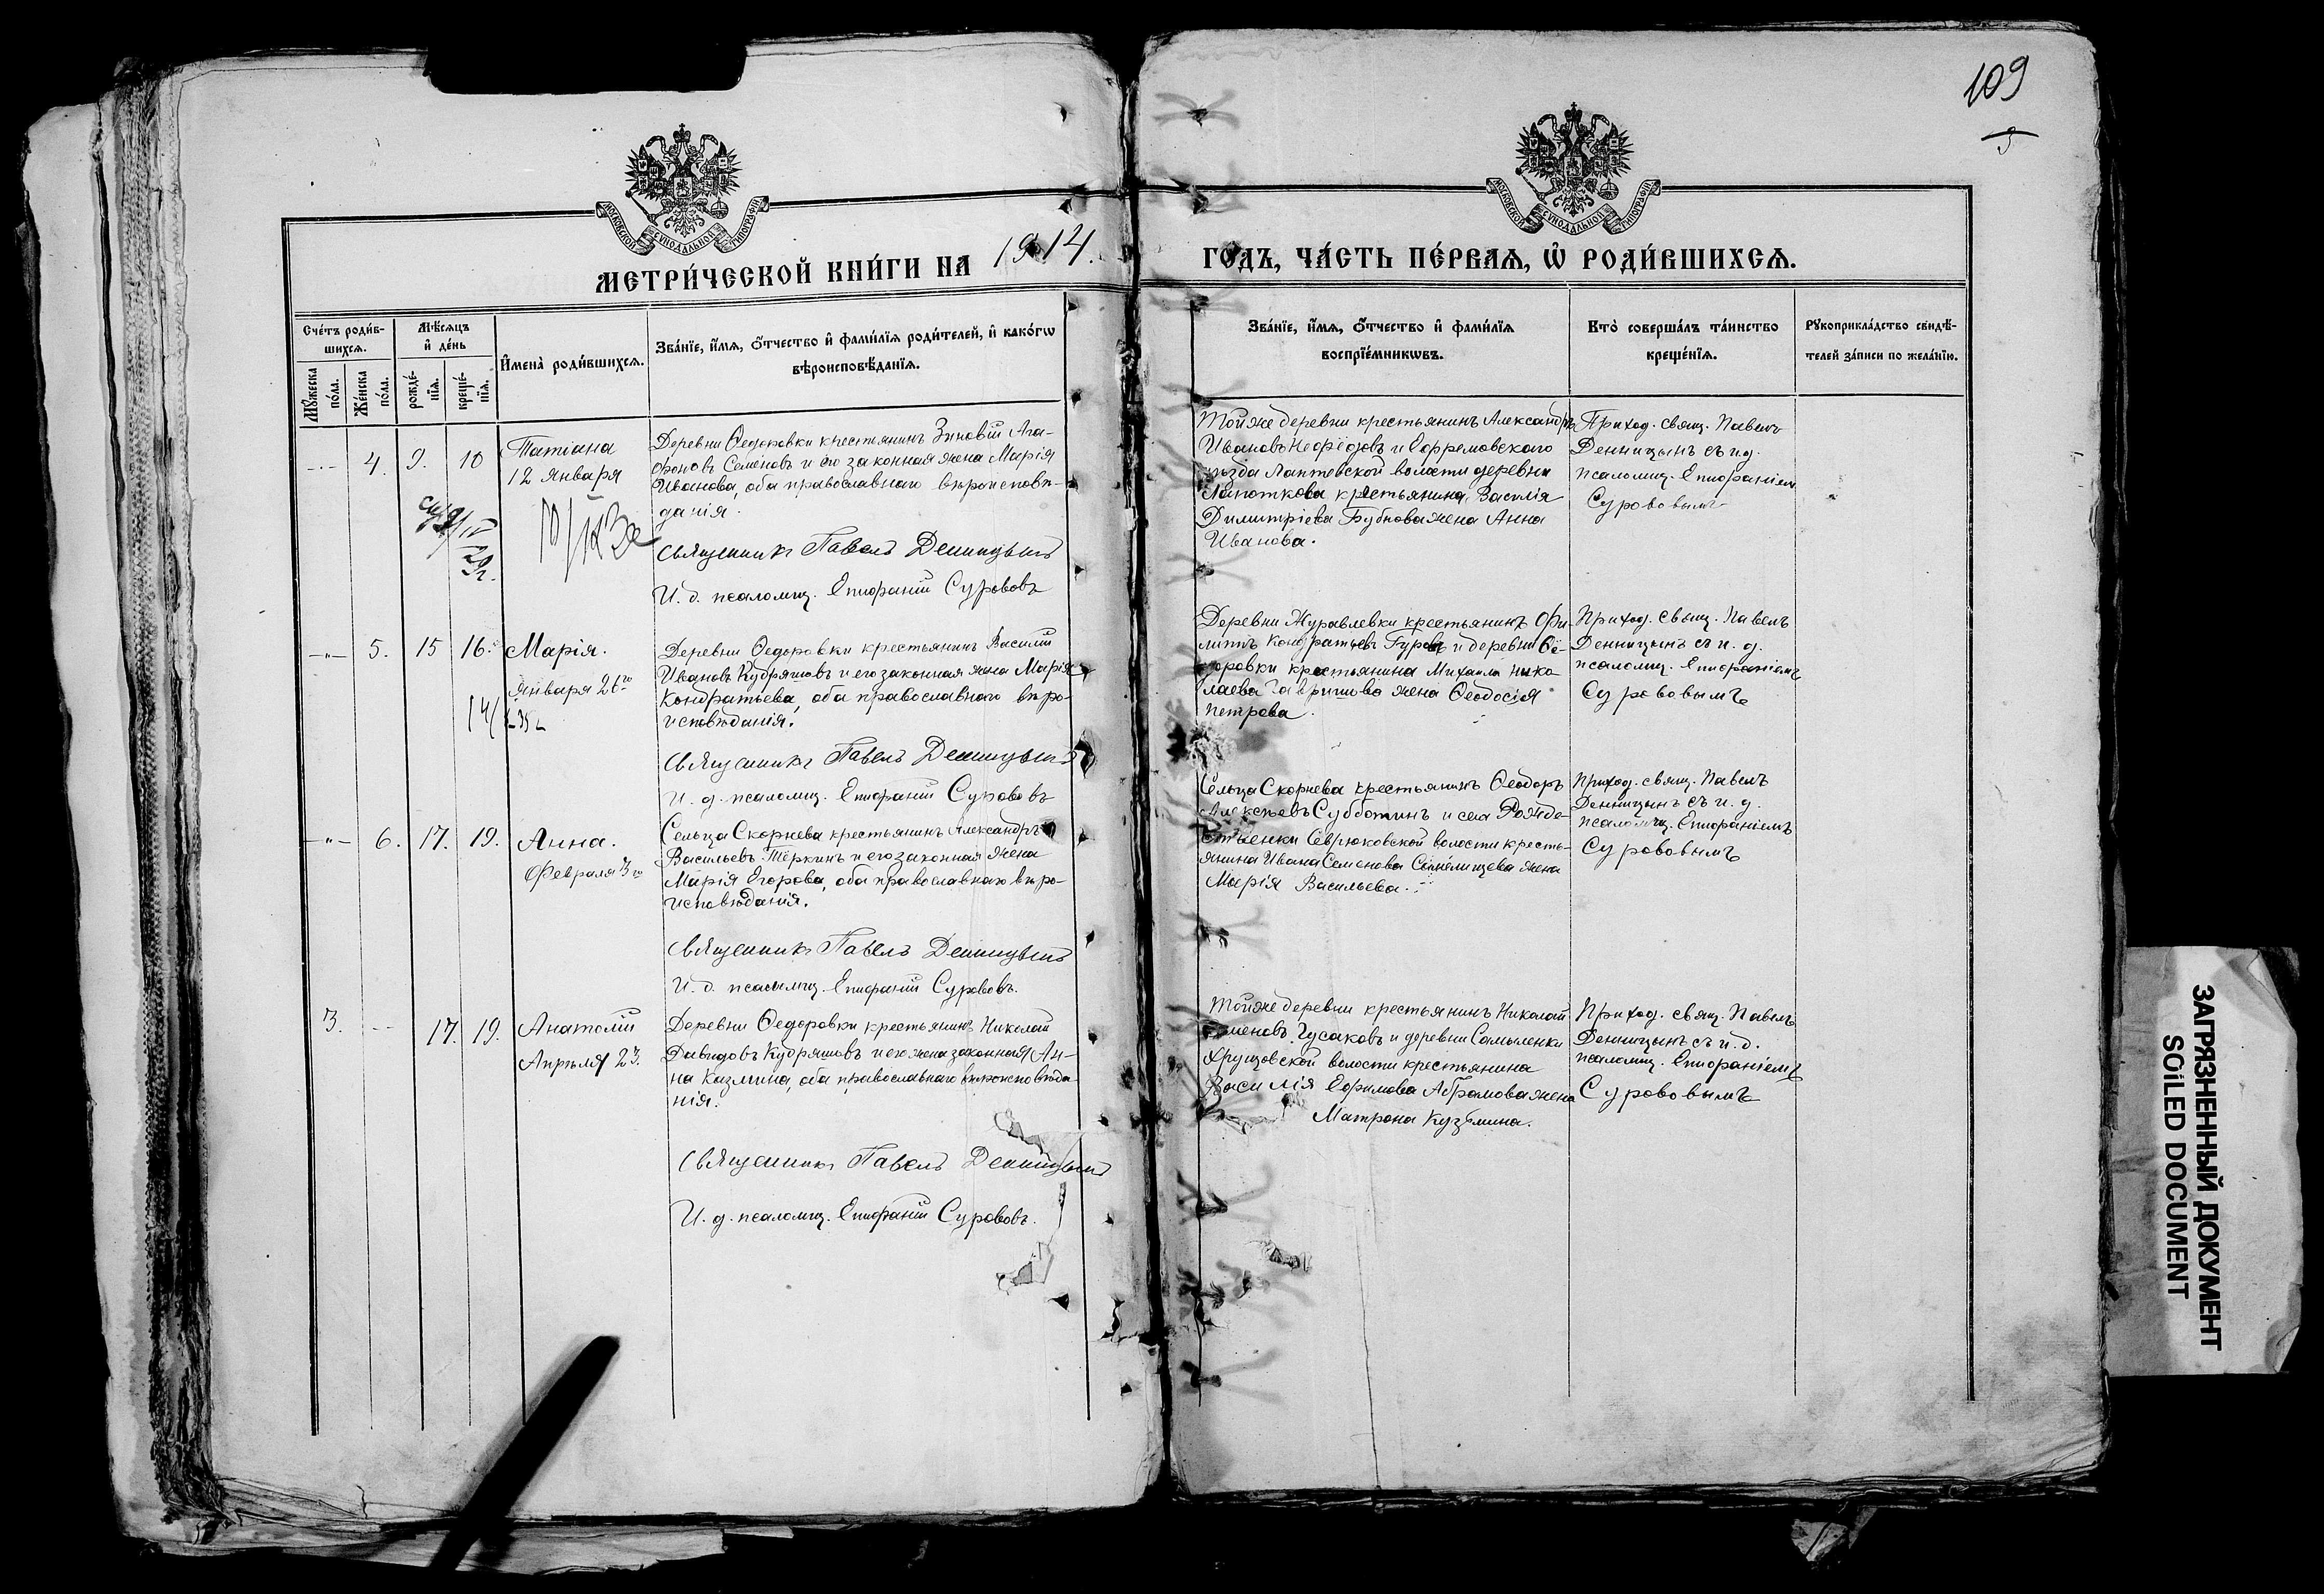 109
МОСКОВСКОЙ СѴНОДАЛЬНОЙ ТИПОГРАФІИ
МОСКОВСКОЙ СѴНОДАЛЬНОЙ ТИПОГРАФІИ
МЕТРИ́ЧЕСКОЙ КНИ́ГИ НА 1914.
ГОДЪ, ЧА́СТЬ ПЕ́РВАѦ, Ѡ҆ РОДИ́ВШИХСѦ.
Сче́тъ роди́в-
шихсѧ.
Мѣ́сѧцъ
и҆ де́нь
Мꙋ́жеска
по́ла.
Же́нска
по́ла.
рожде́-
нїѧ.
креще́-
нїѧ.
И҆мена̀ роди́вшихсѧ.
Зва́нїе, и҆́мѧ, ѻ҆́тчество и҆ фами́лїѧ роди́телей, и҆ како́гѡ
вѣроисповѣ́данїѧ.
Зва́нїе, и҆́мѧ, ѻ҆́тчество и҆ фами́лїѧ
воспрїе́мникѡвъ.
Кто̀ соверша́лъ та́инство
креще́нїѧ.
Рꙋкоприкла́дство свидѣ́-
телей за́писи по жела́нїю.
4. 9. 10
Татіана
12 января
Деревни Ѳедоровки крестьянинъ Зиновій Ага-
фоновъ Семёновъ и его законная жена Марія
Иванова, оба православнаго вѣроисповѣ-
данія.
Священникъ Павелъ Денницынъ
И. д. псаломщ. Епифаній Суrововъ
Той же деревни крестьянинъ Александръ
Ивановъ Нефёдовъ и Ефремовскаго
уѣзда Лаптевской волости деревни
Лапоткова крестьянина Василія
Димитріева Бубнова жена Анна
Иванова.
Приход. свящ. Павелъ
Денницынъ съ и.д.
псаломщ. Епифаніемъ
Суrововымъ
5. 15 16.
Марія.
Января 26го
Деревни Ѳедоровки крестьянинъ Василій
Ивановъ Кудряшовъ и его законная жена Марія
Кондратьева, оба православнаго вѣро-
исповѣданія.
Священникъ Павелъ Денницынъ
И. д. псаломщ. Епифаній Суrововъ
Деревни Журавлевки крестьянинъ Фи-
липпъ Кондратьевъ Гуровъ и деревни Ѳе-
доровки крестьянина Михаила Нико-
лаева Гавришова жена Ѳеодосія
Петрова.
Приход. свящ. Павелъ
Денницынъ съ и. д.
псаломщ. Епифаніемъ
Суrововымъ
6. 17. 19.
Анна.
Февраля 3го
Сельца Скорнева крестьянинъ Александръ
Васильевъ Тёркинъ и его законная жена
Марія Егорова, оба православнаго вѣро-
исповѣданія.
Священникъ Павелъ Денницынъ
И. д. псаломщ. Епифаній Суrововъ.
Сельца Скорнева крестьянинъ Ѳеодоръ
Алексѣевъ Субботинъ и села Рожде-
ствѣнки Севрюковской волости кресть-
янина Ивана Семенова жена
Марія Васильева.
Приход. свящ. Павелъ
Денницынъ съ и. д.
псаломщ. Епифаніемъ
Суrововымъ
3. 17. 19.
Анатолій
Апрѣля 23.
Деревни Ѳедоровки крестьянинъ Николай
Давидовъ Кудряшовъ и его жена законная Ан-
на Казмина, оба православнаго вѣроисповѣда-
нія.
Священникъ Павелъ Денницынъ
И. д. псаломщ. Епифаній Суrововъ.
Той же деревни крестьянинъ Николай
Семеновъ Гусаковъ и деревни Самыленки
Хрущовской волости крестьянина
Василія Ефимова Абрамова жена
Матрона Кузьмина.
Приход. свящ. Павелъ
Денницынъ съ и. д.
псаломщ. Епифаніемъ
Суrововымъ
ЗАГРЯЗНЕННЫЙ ДОКУМЕНТ
SOiLED DOCUMENT